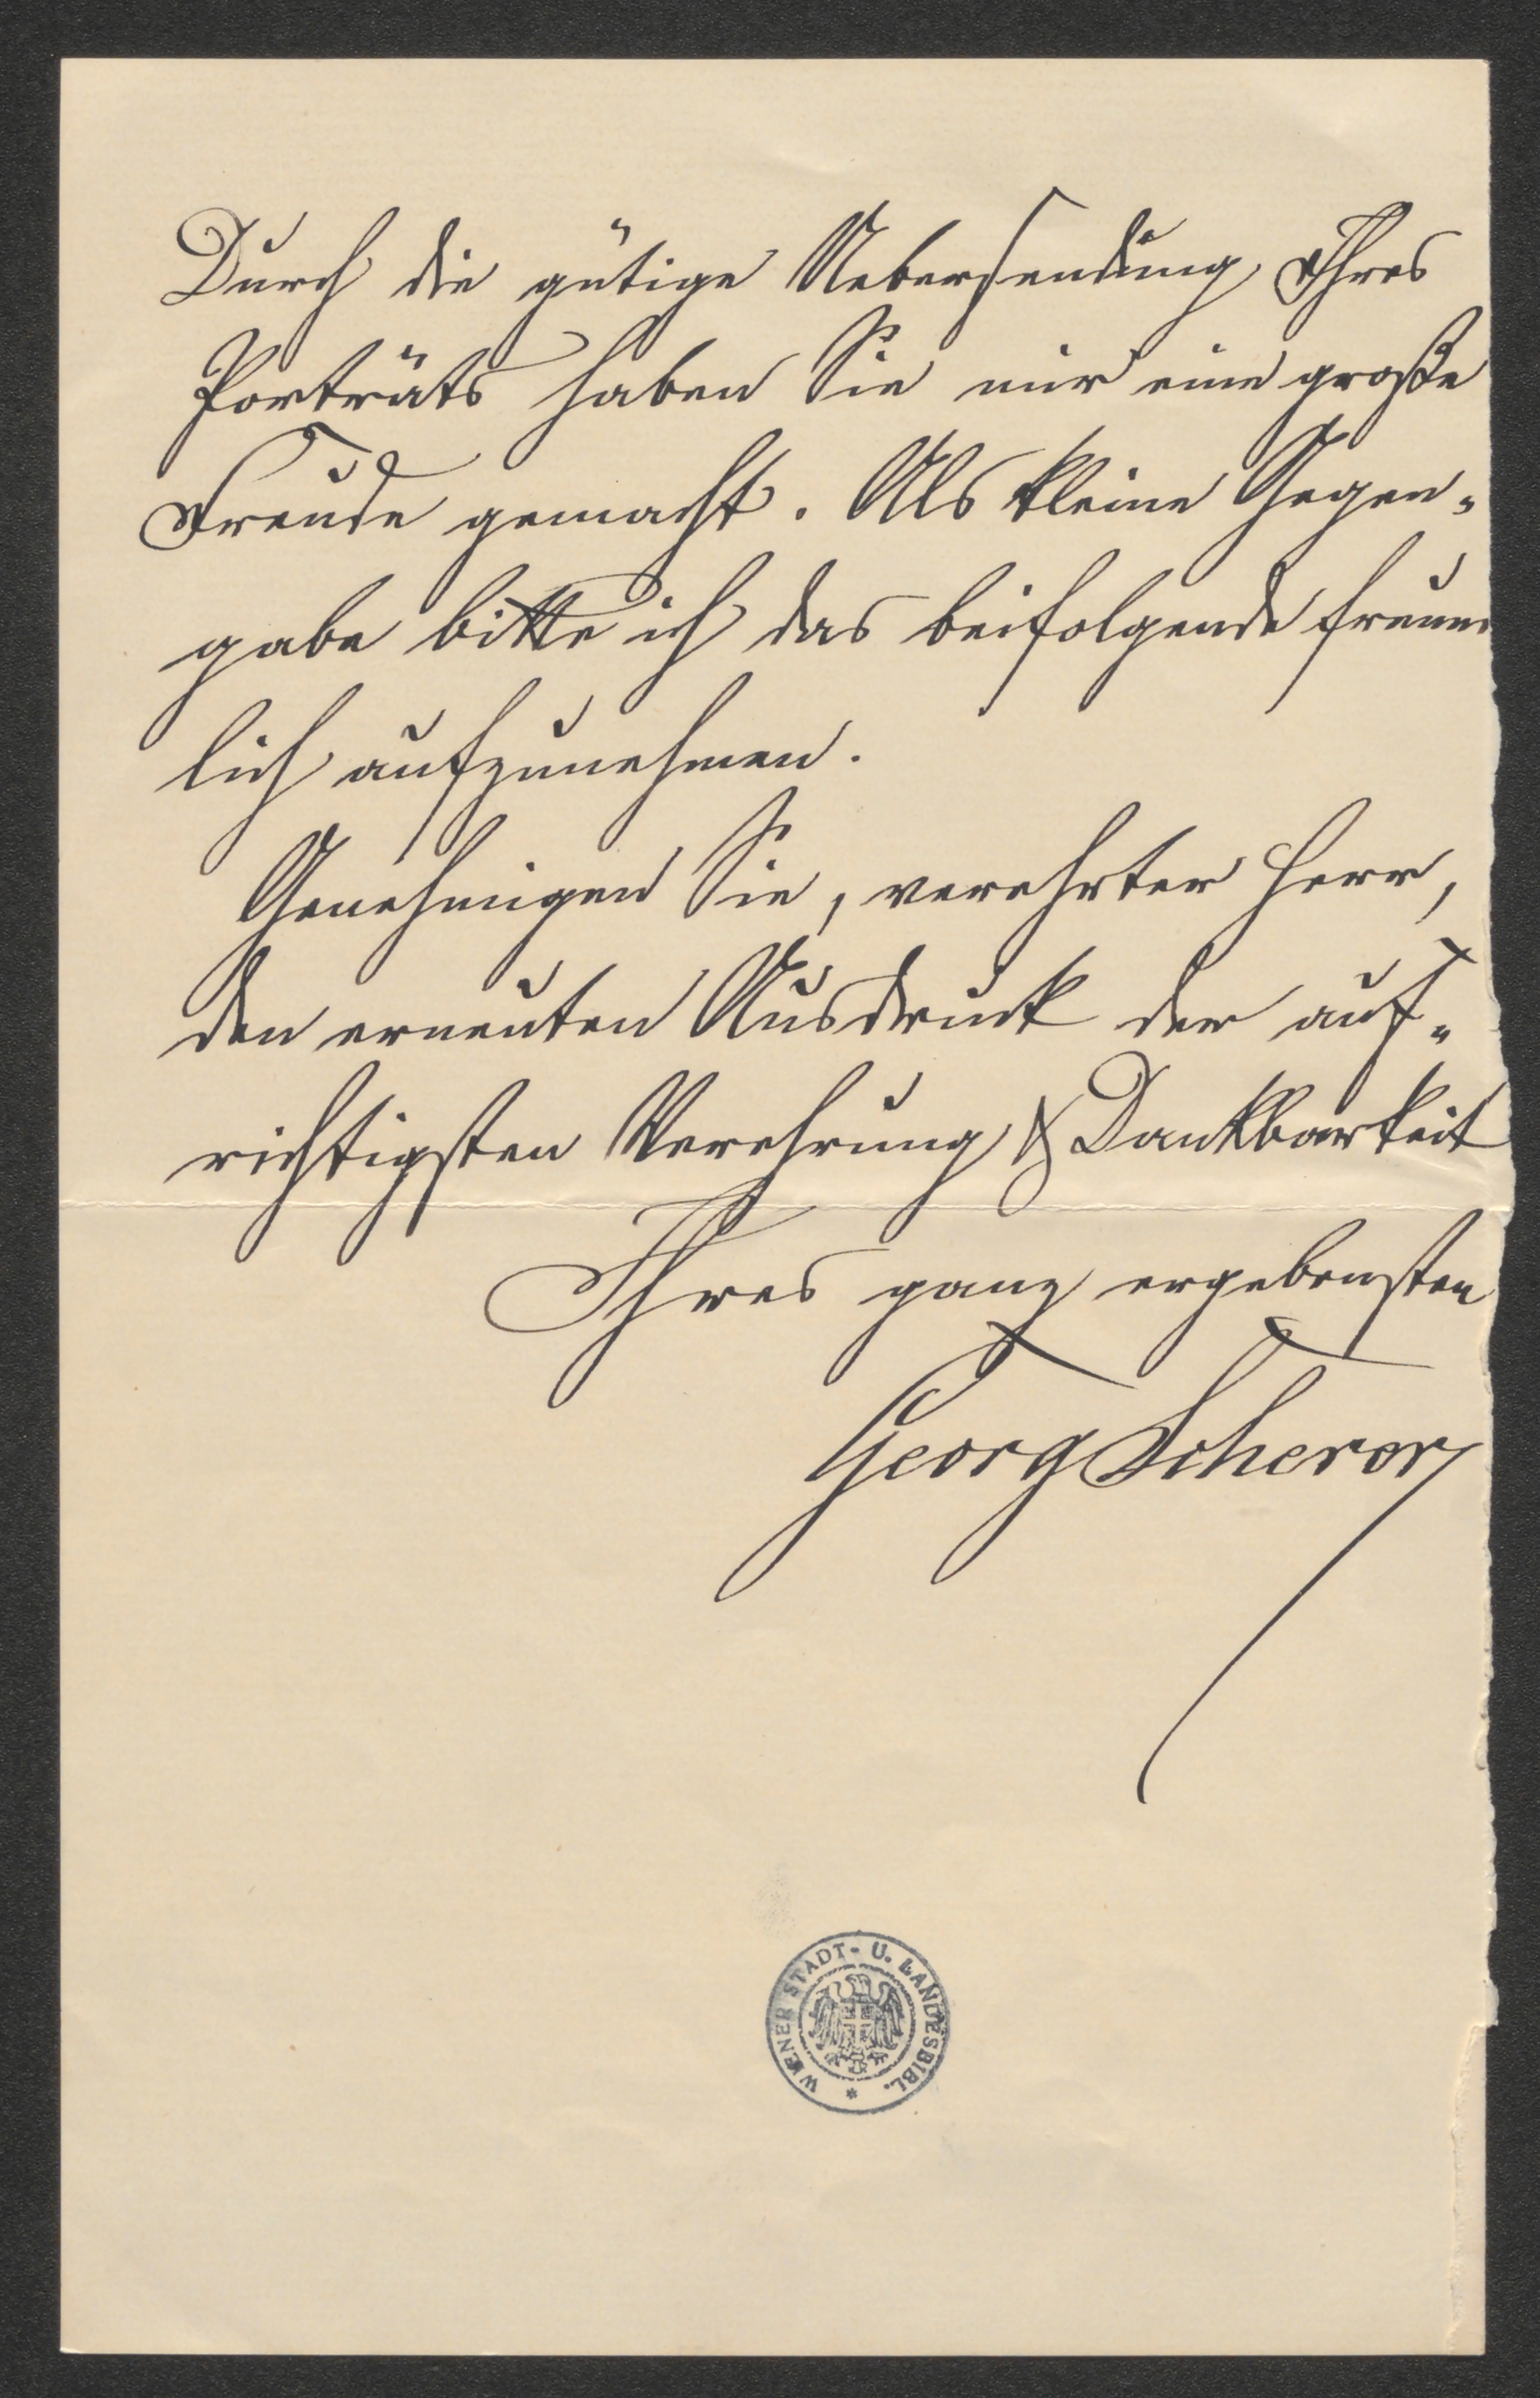 Durch die gütige Uebersendung Ihres
Porträts haben Sie mir eine große
Freude gemacht. Als kleine Gegen-
gabe bitte ich das beifolgende freun
lich aufzunehmen.
Genehmigen Sie, verehrter Herr,
den erneuten Ausdruck der auf-
richtigsten Verehrung & Dankbarkeit
Ihres ganz ergebensten
Georg Scherer
WIENER STADT- U. LANDESBIBL. *